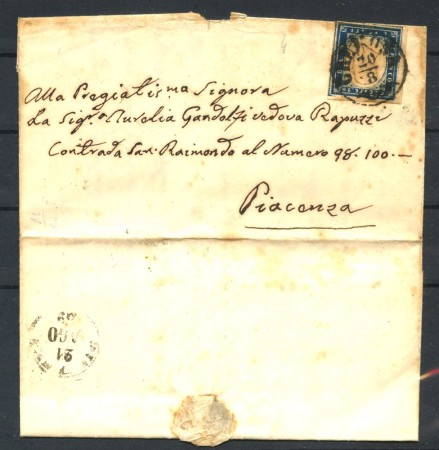 Alla Pregiatis.ma Signora
La Sig.a Aurelia Gandolfi vedova Rapuzzi
Contrada San Raimondo al Numero 98. 100.—
Piacenza
20
8
21
AGO